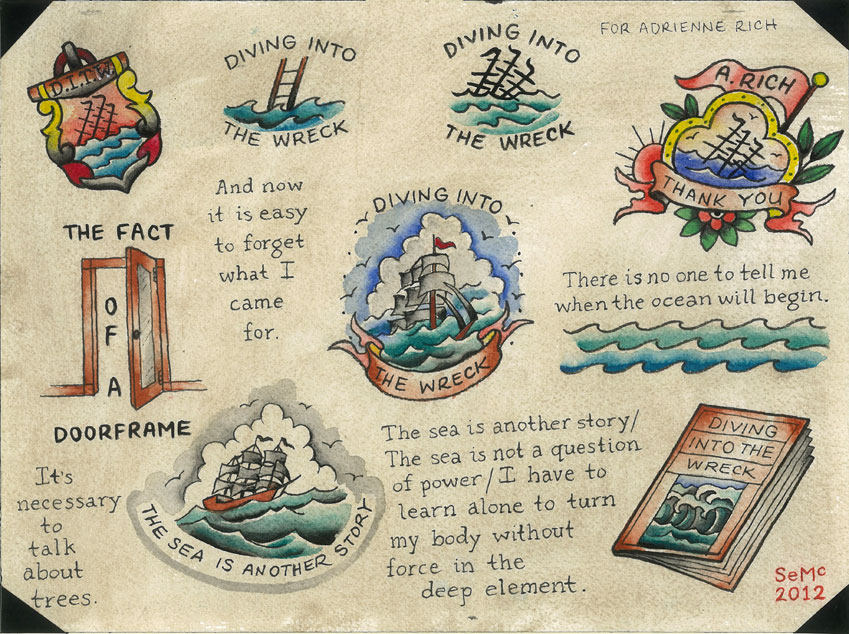 FOR ADRIENNE RICH
D.I.T.W.
DIVING INTO
THE WRECK
DIVING INTO
THE WRECK
A. RICH
THANK YOU
And now
it is easy
to forget
what I
came
for.
THE FACT
O
F
A
DOORFRAME
DIVING INTO
THE WRECK
There is no one to tell me
when the ocean will begin.
It's
necessary
to
talk
about
trees.
THE SEA IS ANOTHER STORY
The sea is another story/
The sea is not a question
of power/I have to
learn alone to turn
my body without
force in the
deep element.
DIVING
INTO THE
WRECK
SeMc
2012